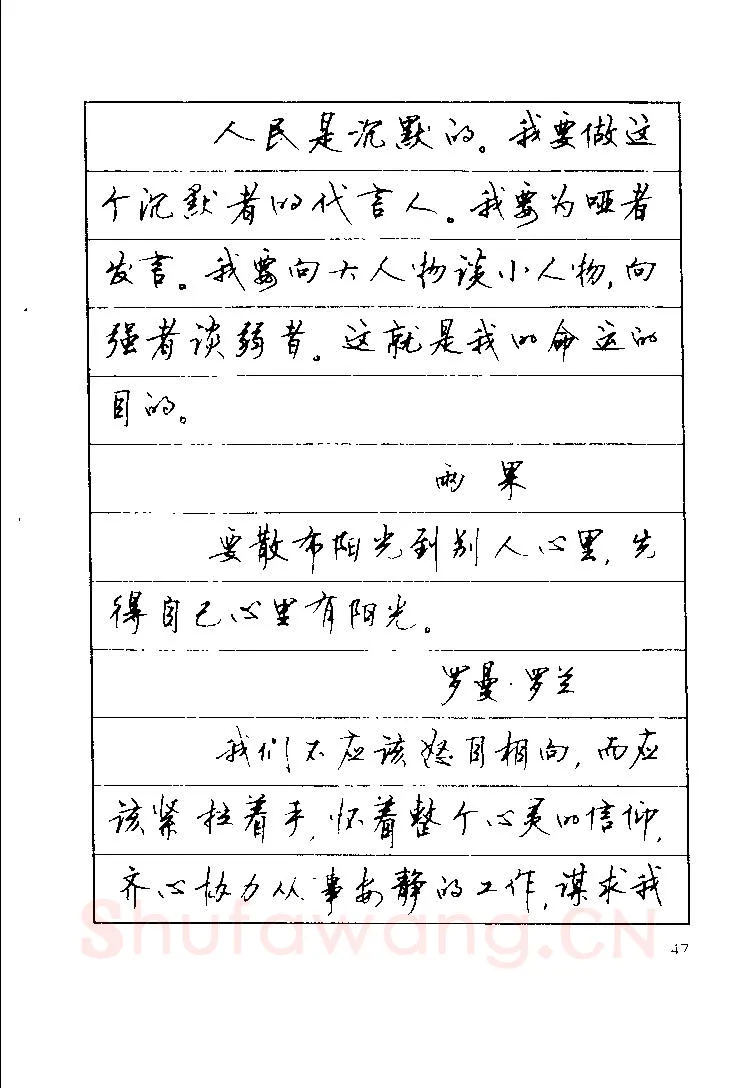 人民是沉默的。我要做这
个沉默者的代言人。我要为哑者
发言。我要向大人物谈小人物,向
强者谈弱者。这就是我的命运的
目的。
雨果
要散布阳光到别人心里,先
得自己心里有阳光。
罗曼·罗兰
我们不应该怒目相向,而应
该紧拉着手,怀着整个心灵的信仰,
齐心协力从事安静的工作,谋求我
Shufawang.CN
47